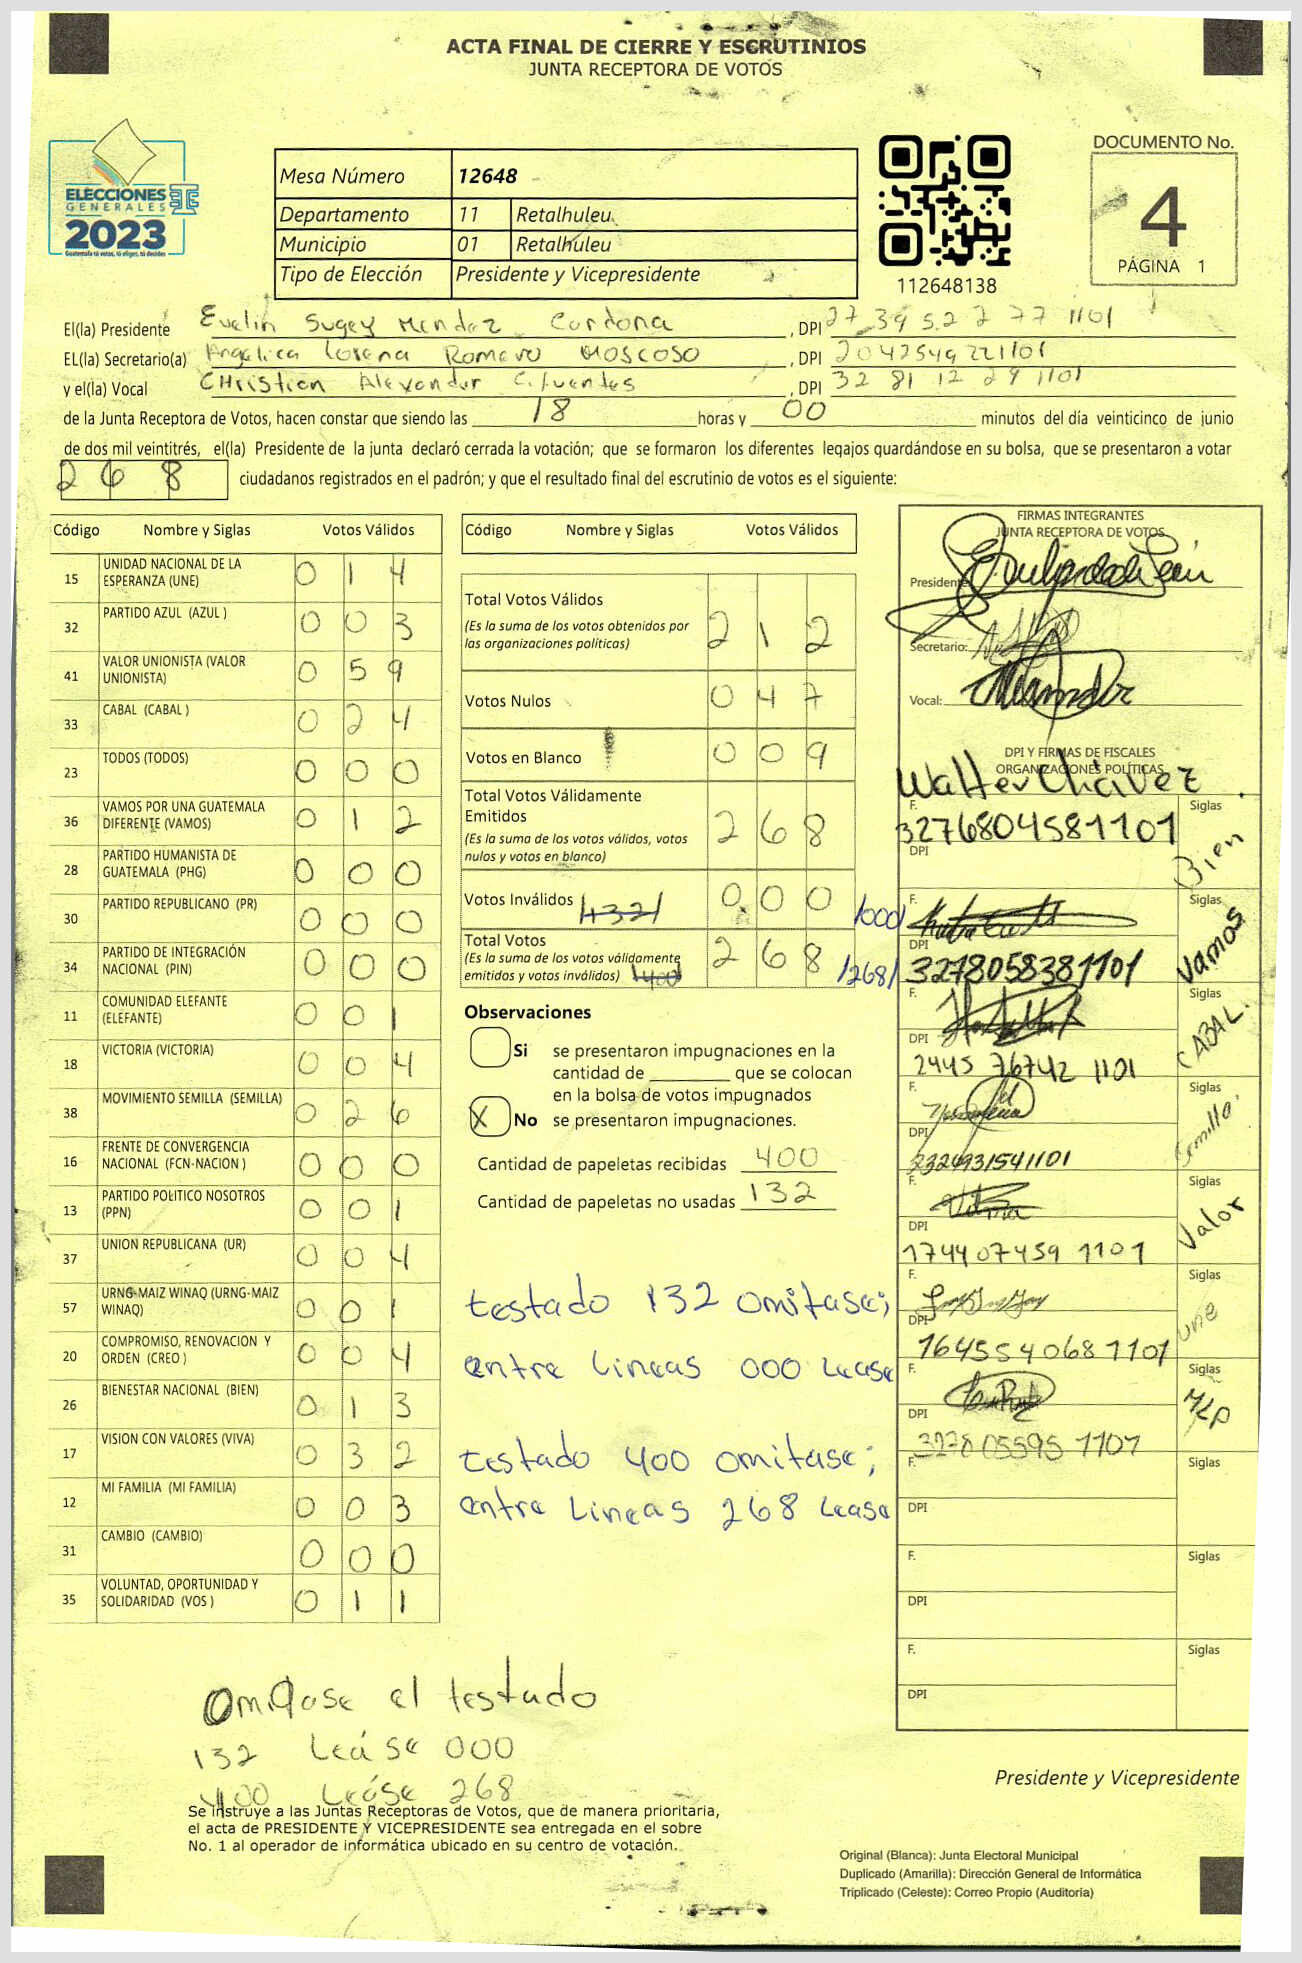 ACTA FINAL DE CIERRE Y ESCRUTINIOS
JUNTA RECEPTORA DE VOTOS
ELECCIONES
GENERALES
2023
Guatemala tú votas, tú eliges, tú decides
Mesa Número 12648
Departamento 11 Retalhuleu
Municipio 01 Retalhuleu
Tipo de Elección Presidente y Vicepresidente
112648138
DOCUMENTO No.
4
PÁGINA 1
El(la) Presidente Evelin Sugey Mendez Cardona, DPI 27 39 52 2 77 1101
EL(la) Secretario(a) Angelica Lorena Romero Moscoso, DPI 2042549221101
y el(la) Vocal CHristian Alexander Cifuentes, DPI 32 81 12 29 1101
de la Junta Receptora de Votos, hacen constar que siendo las 18 horas y 00 minutos del día veinticinco de junio
de dos mil veintitrés, el(la) Presidente de la junta declaró cerrada la votación; que se formaron los diferentes legajos guardándose en su bolsa, que se presentaron a votar
268 ciudadanos registrados en el padrón; y que el resultado final del escrutinio de votos es el siguiente:
Código Nombre y Siglas Votos Válidos
15 UNIDAD NACIONAL DE LA ESPERANZA (UNE) 0 1 4
32 PARTIDO AZUL (AZUL ) 0 0 3
41 VALOR UNIONISTA (VALOR UNIONISTA) 0 5 9
33 CABAL (CABAL ) 0 2 4
23 TODOS (TODOS) 0 0 0
36 VAMOS POR UNA GUATEMALA DIFERENTE (VAMOS) 0 1 2
28 PARTIDO HUMANISTA DE GUATEMALA (PHG) 0 0 0
30 PARTIDO REPUBLICANO (PR) 0 0 0
34 PARTIDO DE INTEGRACIÓN NACIONAL (PIN) 0 0 0
11 COMUNIDAD ELEFANTE (ELEFANTE) 0 0 1
18 VICTORIA (VICTORIA) 0 0 4
38 MOVIMIENTO SEMILLA (SEMILLA) 0 2 6
16 FRENTE DE CONVERGENCIA NACIONAL (FCN-NACION ) 0 0 0
13 PARTIDO POLITICO NOSOTROS (PPN) 0 0 1
37 UNION REPUBLICANA (UR) 0 0 4
57 URNG-MAIZ WINAQ (URNG-MAIZ WINAQ) 0 0 1
20 COMPROMISO, RENOVACION Y ORDEN (CREO ) 0 0 4
26 BIENESTAR NACIONAL (BIEN) 0 1 3
17 VISION CON VALORES (VIVA) 0 3 2
12 MI FAMILIA (MI FAMILIA) 0 0 3
31 CAMBIO (CAMBIO) 0 0 0
35 VOLUNTAD, OPORTUNIDAD Y SOLIDARIDAD (VOS ) 0 1 1
Código Nombre y Siglas Votos Válidos
Total Votos Válidos
(Es la suma de los votos obtenidos por
las organizaciones políticas) 2 1 2
Votos Nulos 0 4 7
Votos en Blanco 0 0 9
Total Votos Válidamente
Emitidos
(Es la suma de los votos válidos, votos
nulos y votos en blanco) 2 6 8
Votos Inválidos /132/ 0 0 0 /000/
Total Votos
(Es la suma de los votos válidamente
emitidos y votos inválidos) /400/ 2 6 8 /268/
Observaciones
Si se presentaron impugnaciones en la
cantidad de ________ que se colocan
en la bolsa de votos impugnados
X No se presentaron impugnaciones.
Cantidad de papeletas recibidas 400
Cantidad de papeletas no usadas 132
testado 132 omitase;
entre lineas 000 Lease
testado 400 omitase;
entre lineas 268 Lease
FIRMAS INTEGRANTES
JUNTA RECEPTORA DE VOTOS
Presidente:
Secretario:
Vocal:
DPI Y FIRMAS DE FISCALES
ORGANIZACIONES POLÍTICAS
Walter Chávez
F. Siglas
3276804581101 Bien
DPI
F. Siglas
DPI Vamos
3278058381101
F. Siglas
DPI CABAL.
2445 76742 1101
F. Siglas
DPI Semilla
2324931541101
F. Siglas
DPI Valor
1744 07459 1101
F. Siglas
DPI une
1645540681101
F. Siglas
DPI MLP
3278 05595 1101
F.
DPI
F. Siglas
DPI
F. Siglas
DPI
Omitase el testado
132 Leáse 000
400 Leáse 268
Se instruye a las Juntas Receptoras de Votos, que de manera prioritaria,
el acta de PRESIDENTE Y VICEPRESIDENTE sea entregada en el sobre
No. 1 al operador de informática ubicado en su centro de votación.
Presidente y Vicepresidente
Original (Blanca): Junta Electoral Municipal
Duplicado (Amarilla): Dirección General de Informática
Triplicado (Celeste): Correo Propio (Auditoría)